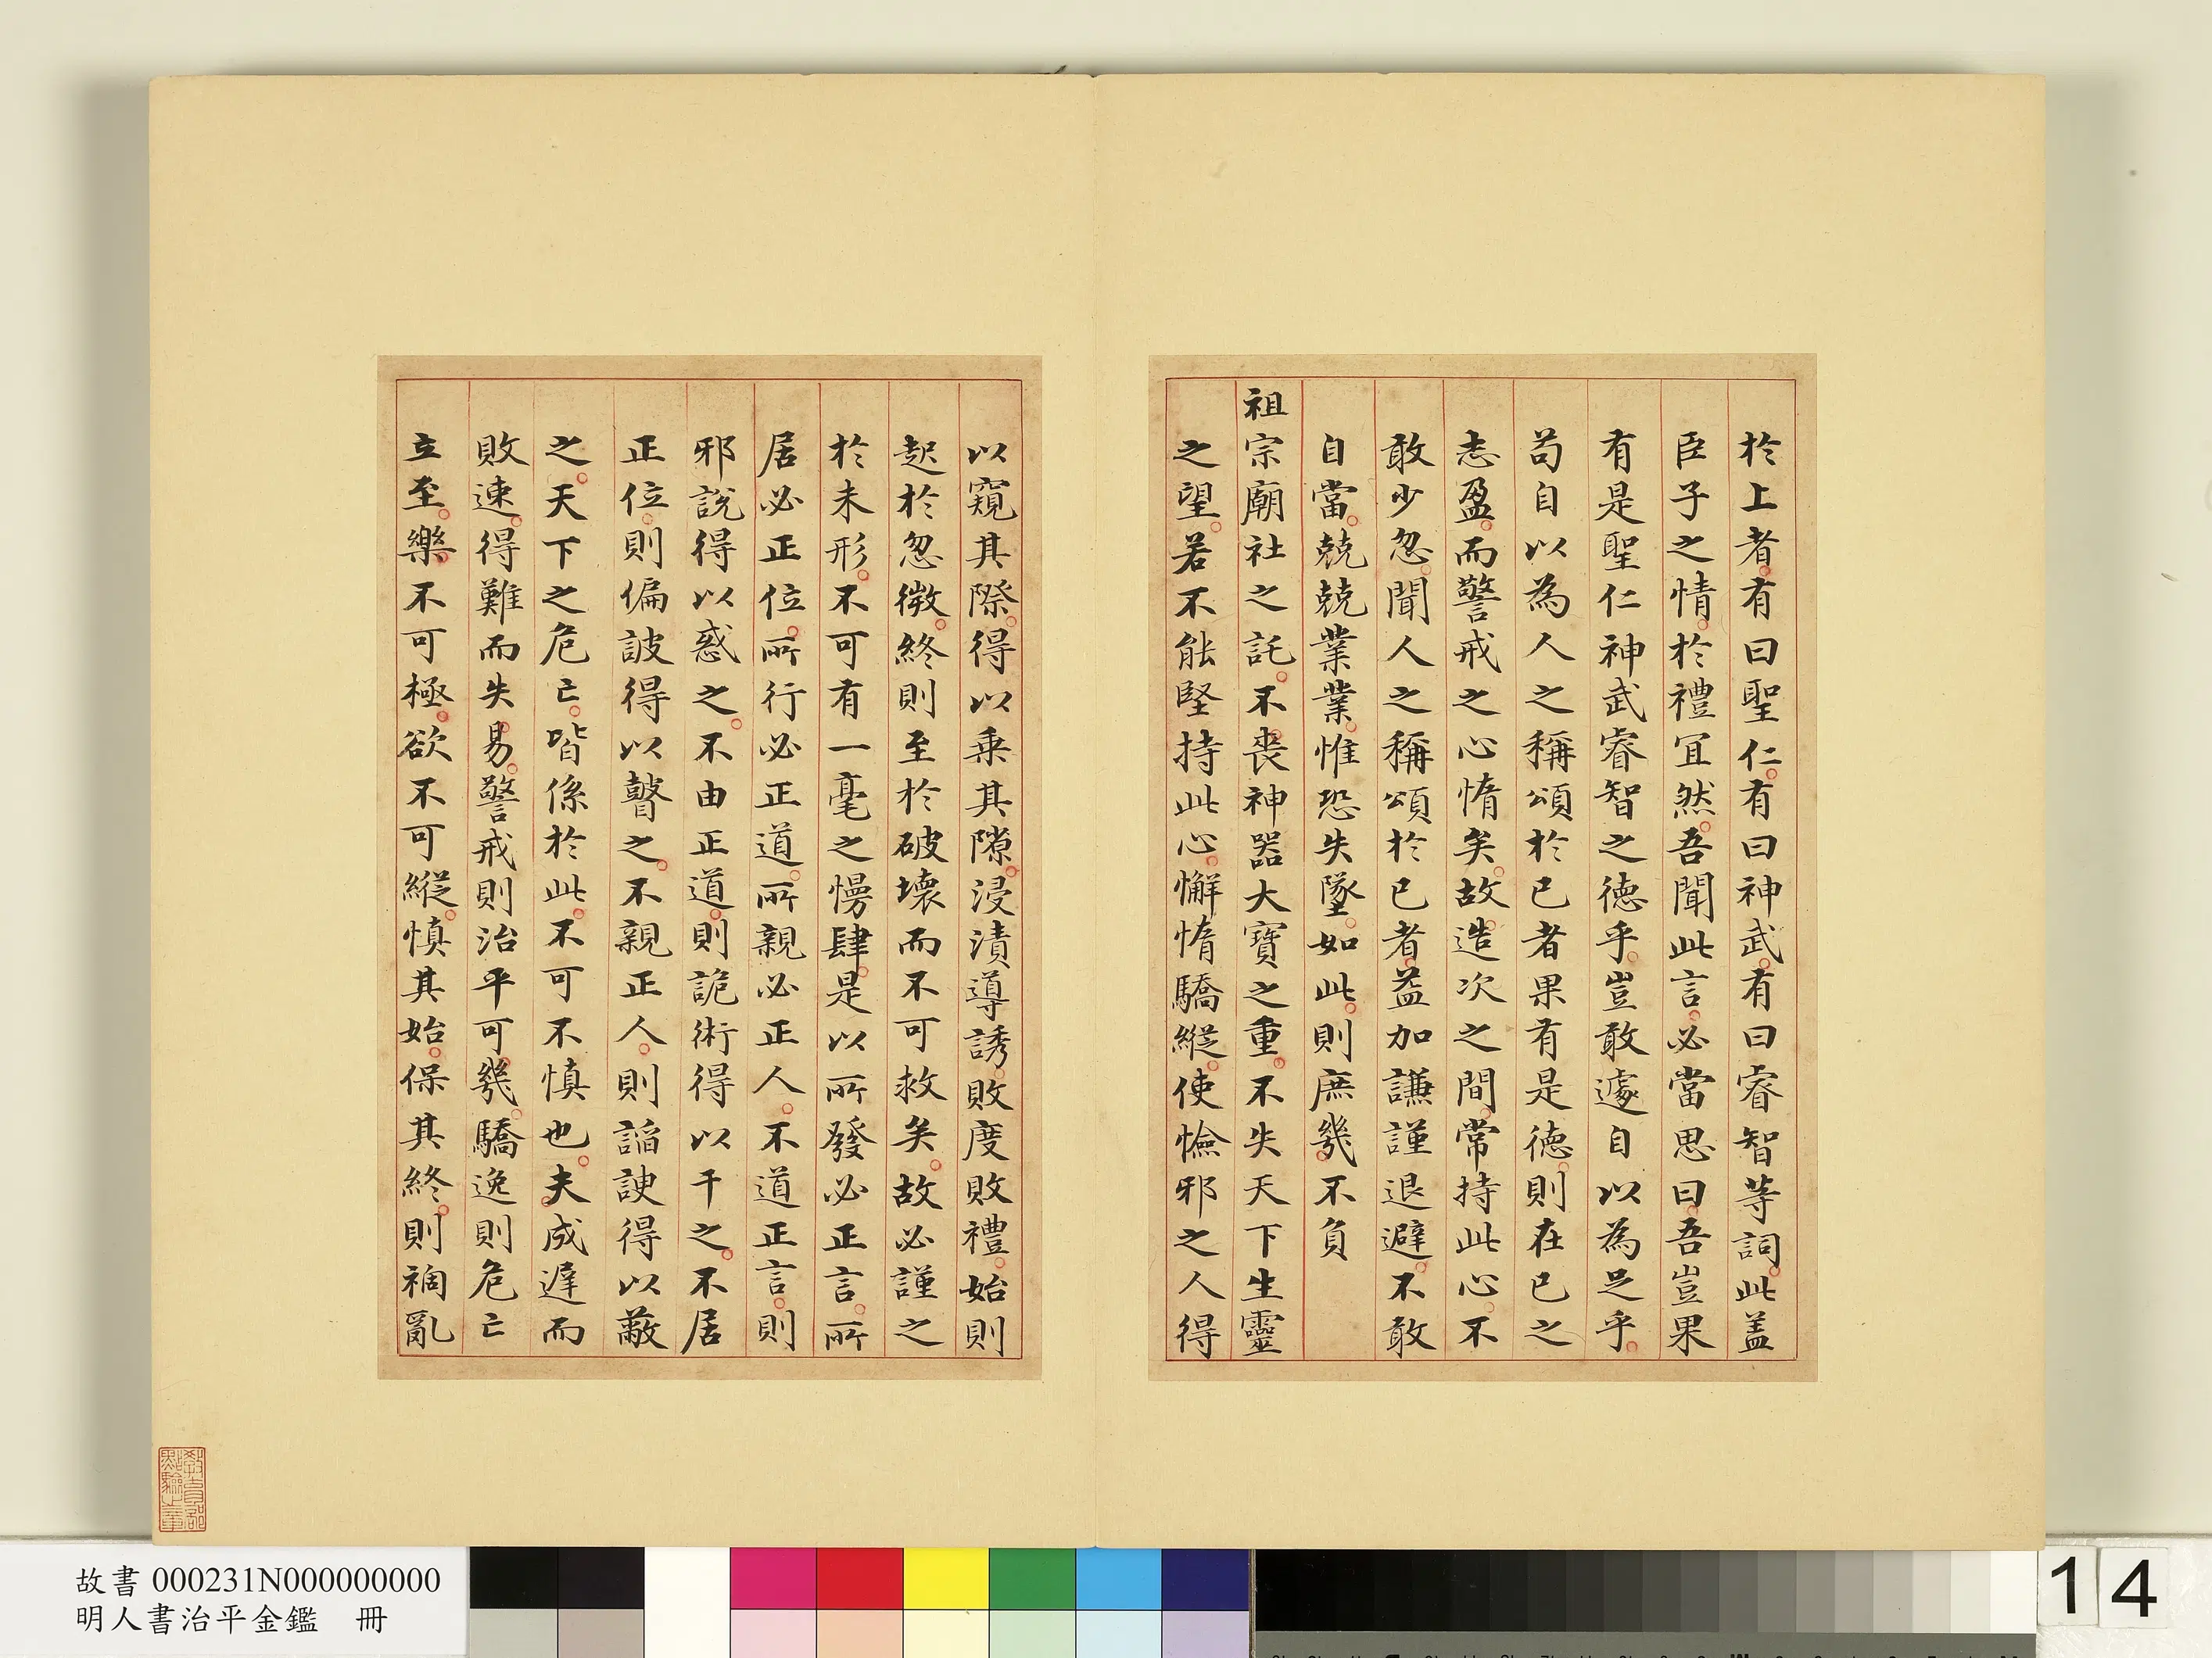 於上者有曰聖仁有曰神武有曰睿智等詞此盖
臣子之情於禮宜然吾聞此言必當思曰吾豈果
有是聖仁神武睿智之德乎豈敢遽自以為足乎
苟自以為人之稱頌於已者果有是德則在已之
志盈而警戒之心惰矣故造次之間常持此心不
敢少忽聞人之稱頌於已者益加謙謹退避不敢
自當兢兢業業惟恐失墜如此則庶幾不負
祖宗廟社之託不喪神器大寶之重不失天下生靈
之望若不能堅持此心懈惰驕縱使憸邪之人得
以窺其際得以乗其隙浸漬導誘敗度敗禮始則
起於忽微終則至於破壞而不可救矣故必謹之
於未形不可有一毫之慢肆是以所發必正言所
居必正位所行必正道所親必正人不道正言則
邪說得以惑之不由正道則詭術得以干之不居
正位則偏詖得以瞽之不親正人則謟諛得以蔽
之天下之危亡皆係於此不可不慎也夫成遲而
敗速得難而失易警戒則治平可幾驕逸則危亡
立至樂不可極欲不可縱慎其始保其終則禍亂
教育部點驗之章
故書 000231N000000000
明人書治平金鑑 冊
14